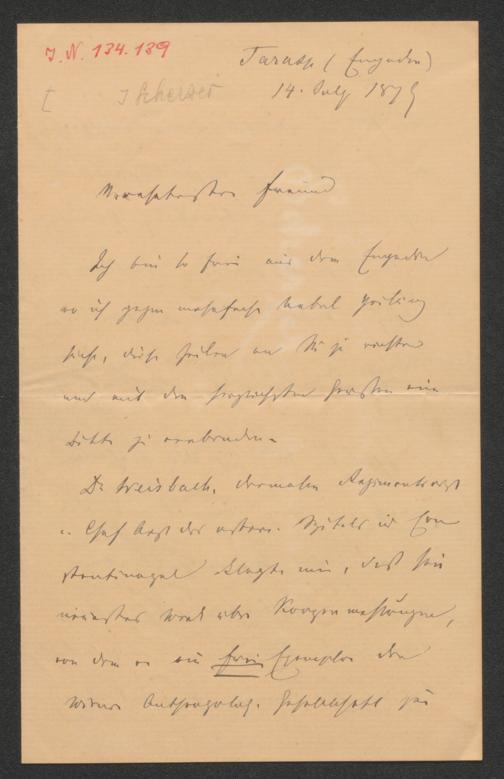 J. N. 134.189
Tarasp (Engadin)
14. July 187
Scherzer
Verehrtester Freund
Ich bin so frei aus dem Engadin
wo ich gegen mehrfache Uebel Heilung
suche, diese Zeilen an Sie zu richten
und mit den herzlichsten Grüssen eine
Bitte zu verbinden.
Dr Weisbach, dermalen Regimentsarzt
u. Chef Arzt des österr. Spitals in Con
stantinopel klagte mir, daß sein
neuestes Werk über Körpermessungen,
von dem er ein frei Exemplar der
Wiener Anthropolog. Gesellschaft